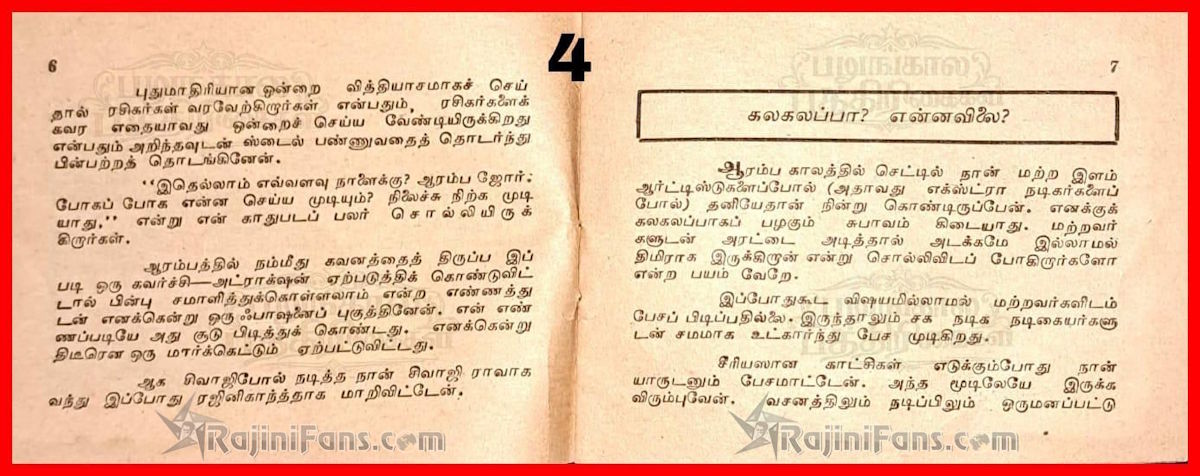 4
6
புதுமாதிரியான ஒன்றை வித்தியாசமாகச் செய்
தால் ரசிகர்கள் வரவேற்கிறார்கள் என்பதும், ரசிகர்களைக்
கவர எதையாவது ஒன்றைச் செய்ய வேண்டியிருக்கிறது
என்பதும் அறிந்தவுடன் ஸ்டைல் பண்ணுவதைத் தொடர்ந்து
பின்பற்றத் தொடங்கினேன்.
‘‘இதெல்லாம் எவ்வளவு நாளைக்கு? ஆரம்ப ஜோர்.
போகப் போக என்ன செய்ய முடியும்? நிலைச்சு நிற்க முடி
யாது.’’ என்று என் காதுபடப் பலர் சொல்லியிருக்
கிறார்கள்.
ஆரம்பத்தில் நம்மீது கவனத்தைத் திருப்ப இப்
படி ஒரு கவர்ச்சி—அட்ராக்‌ஷன் ஏற்படுத்திக் கொண்டுவிட்
டால் பின்பு சமாளித்துக்கொள்ளலாம் என்ற எண்ணத்து
டன் எனக்கென்று ஒரு ஃபாஷனைப் புகுத்தினேன். என் எண்
ணப்படியே அது சூடு பிடித்துக் கொண்டது. எனக்கென்று
திடீரென ஒரு மார்க்கெட்டும் ஏற்பட்டுவிட்டது.
ஆக சிவாஜிபோல் நடித்த நான் சிவாஜி ராவாக
வந்து இப்போது ரஜினிகாந்த்தாக மாறிவிட்டேன்.
RajiniFans.com
7
படிங்கால
பத்திரிகைகள்
கலகலப்பா? என்னவிலை?
ஆரம்ப காலத்தில் செட்டில் நான் மற்ற இளம்
ஆர்ட்டிஸ்டுகளைப்போல் (அதாவது எக்ஸ்ட்ரா நடிகர்களைப்
போல்) தனியேதான் நின்று கொண்டிருப்பேன். எனக்குக்
கலகலப்பாகப் பழகும் சுபாவம் கிடையாது. மற்றவர்
களுடன் அரட்டை அடித்தால் அடக்கமே இல்லாமல்
திமிராக இருக்கிறான் என்று சொல்லிவிடப் போகிறார்களோ
என்ற பயம் வேறே.
இப்போதுகூட விஷயமில்லாமல் மற்றவர்களிடம்
பேசப் பிடிப்பதில்லை. இருந்தாலும் சக நடிக நடிகையர்களு
டன் சமமாக உட்கார்ந்து பேச முடிகிறது.
சீரியஸான காட்சிகள் எடுக்கும்போது நான்
யாருடனும் பேசமாட்டேன். அந்த மூடிலேயே இருக்க
விரும்புவேன். வசனத்திலும் நடிப்பிலும் ஒருமனப்பட்டு
RajiniFans.com